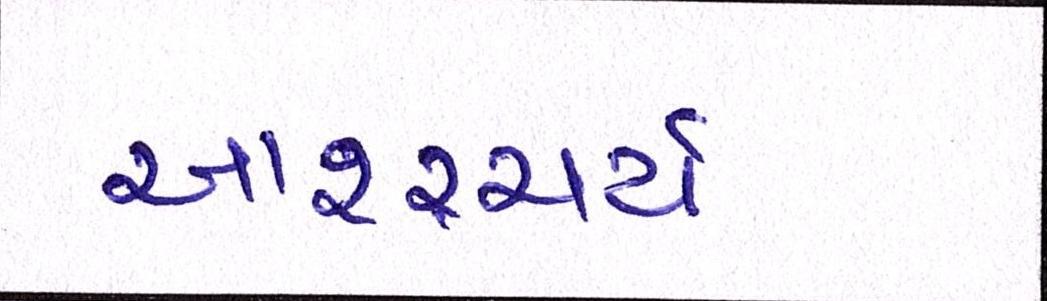 આશ્ચર્ય